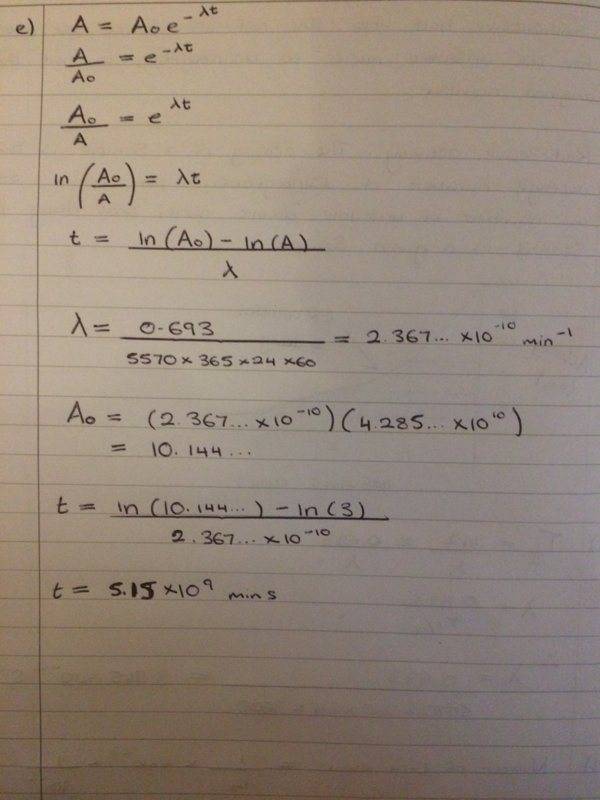 e) A = A₀e^-λt
A/A₀ = e^-λt
A₀/A = e^λt
ln(A₀/A) = λt
t = ln(A₀) - ln(A) / λ
λ = 0.693 / 5570 × 365 × 24 × 60 = 2.367... × 10^-10 min^-1
A₀ = (2.367... × 10^-10)(4.285... × 10^10)
= 10.144...
t = ln(10.144...) - ln(3) / 2.367... × 10^-10
t = 5.15 × 10^9 mins